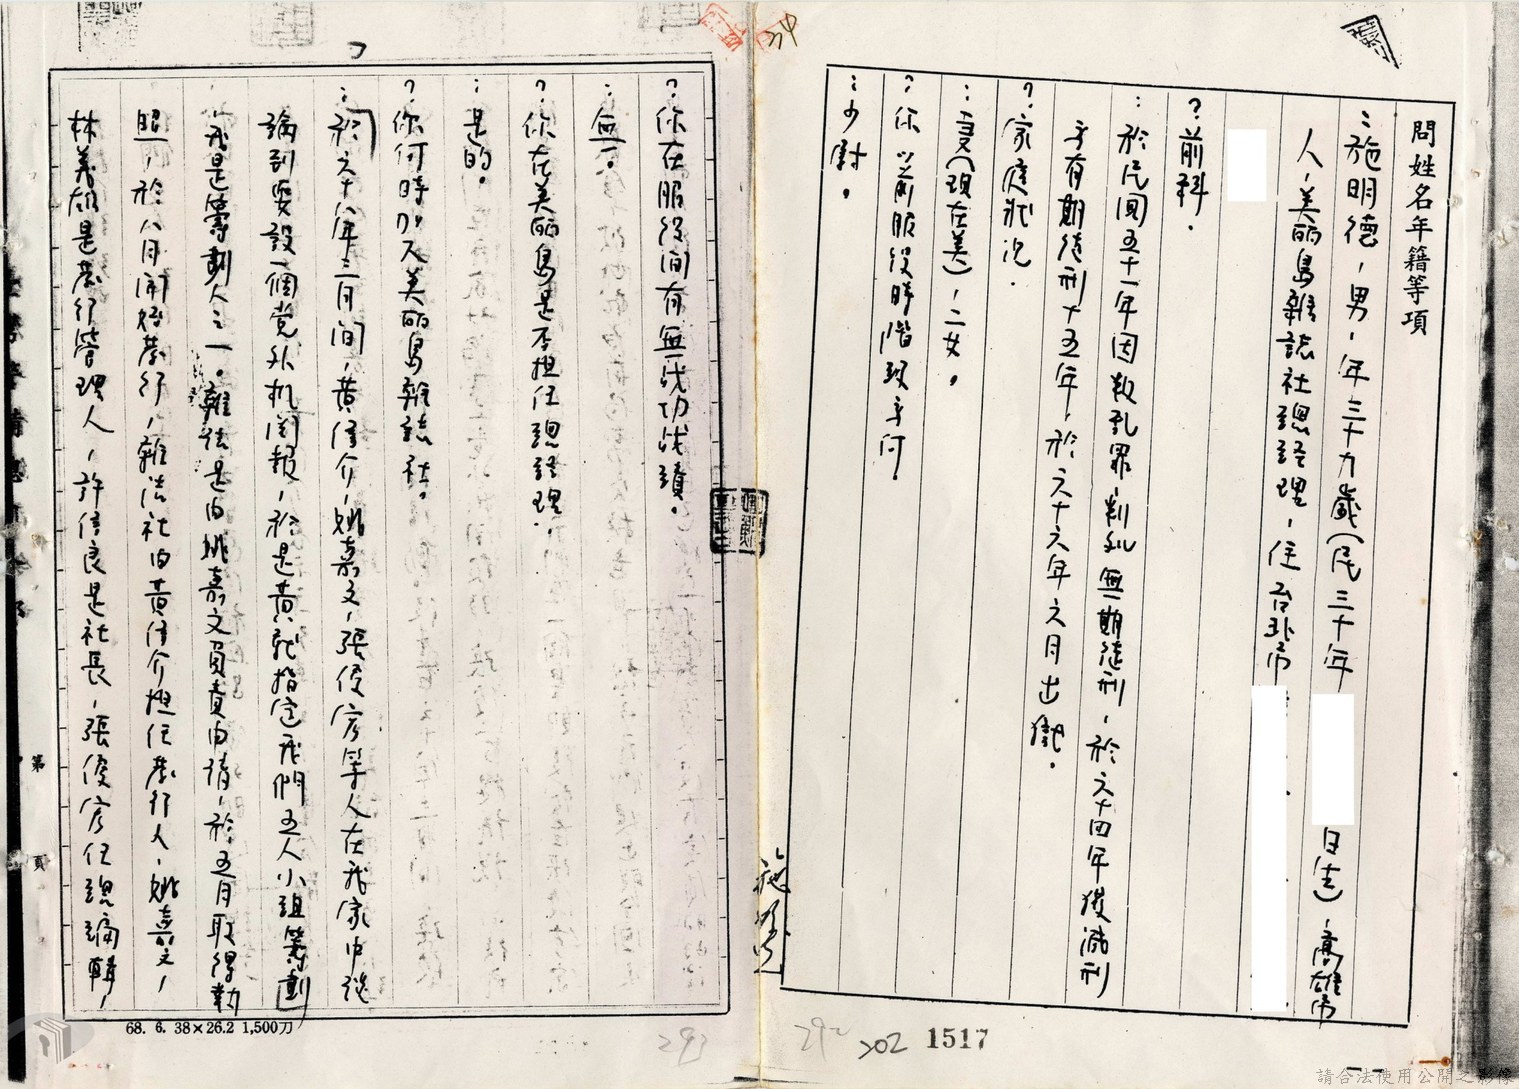 問姓名年籍等項
：施明德，男，年三十九歲（民三十年日生），高雄市
人，美丽島雜誌社總經理，住台北市
？前科．
：於民国五十一年因叛乱罪，判処無期徒刑，於六十四年後減刑
為有期徒刑十五年，於六十六年六月出獄．
？家庭狀况．
：妻（現在美），二女。
？你以前服役時階級為何．
：少尉。
？你在服役間有無战功战績。
：無。
？你在美丽島是否担任總經理．
：是的。
？你何時加入美丽島雜誌社。
：於六十八年三月間，黃信介，姚嘉文，張俊宏等人在我家中談
論到要設一個党外机関報，於是黃就指定我們五人小組籌劃
，我是籌劃人之一。雜誌是由姚嘉文負責申請，於五月取得執
照，於八月開始發行，雜誌社由黃信介担任發行人，姚嘉文，
林義雄是發行管理人，許信良是社長，張俊宏任總編輯，
施明德
第 頁
68. 6. 38×26.2 1,500刀
293
292
202
1517
請合法使用公開之影像